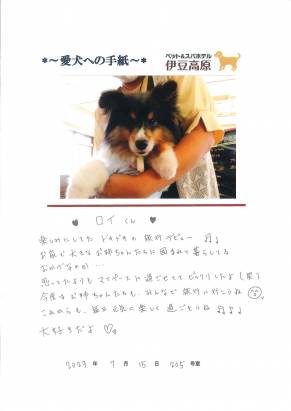 ＊～愛犬への手紙～＊
ペット&スパホテル
伊豆高原
♥ ロイくん ♥
楽しみにしてた ドキドキの 旅行デビュー ♫♪
お家で大きなお姉ちゃんたちに囲まれて暮らしてる
おかげなのか…
思ってたよりも マイペースに過ごせてて ビックリしたよ（笑）
今度はお姉ちゃんたちも、みんなで 旅行に行こうね
これからも、毎日 元気に楽しく 過ごそうね ♫♪♪
大好きだよ ♡
2023 年 9 月 15 日 205 号室